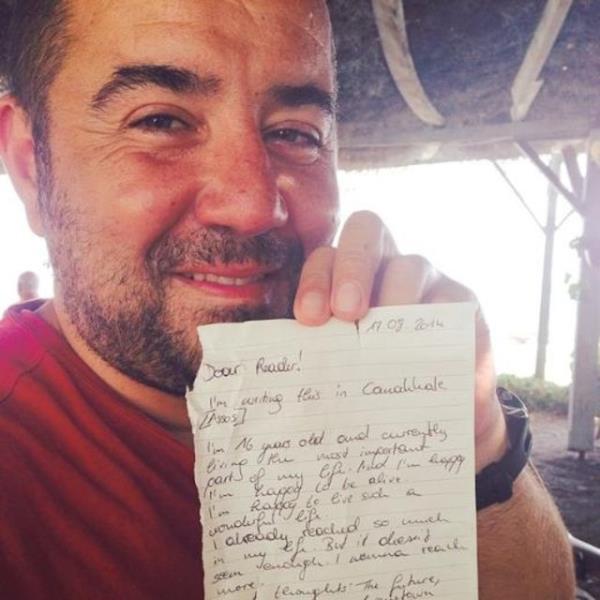 17.08.2014
Dear Reader!
I'm writing this in Canakkale
[Assos]
I'm 16 years old and currently
living the most important
part of my life. And I'm happy
I'm happy to be alive.
I'm happy to live such a
wonderful life.
I already reached so much
in my life. But it doesn't
seem enough. I wanna reach
more.
thoughts. The future,
hometown